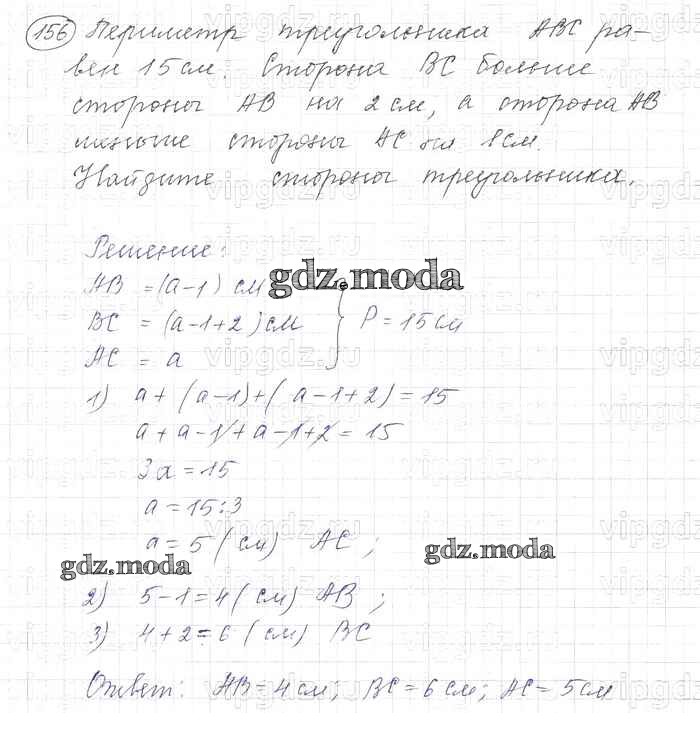 156 Периметр треугольника ABC ра-
вен 15 см. Сторона BC больше
стороны AB на 2 см, а сторона AB
меньше стороны AC на 1 см.
Найдите стороны треугольника.
Решение:
AB = (a-1) см
gdz.moda
BC = (a-1+2) см } P = 15 см
AC = a
1) a + (a-1) + (a-1+2) = 15
a + a-1 + a-1+2 = 15
3a = 15
a = 15:3
a = 5 (см) AC;
gdz.moda
gdz.moda
2) 5-1 = 4 (см) AB;
3) 4+2 = 6 (см) BC
Ответ: AB = 4 см; BC = 6 см; AC = 5 см